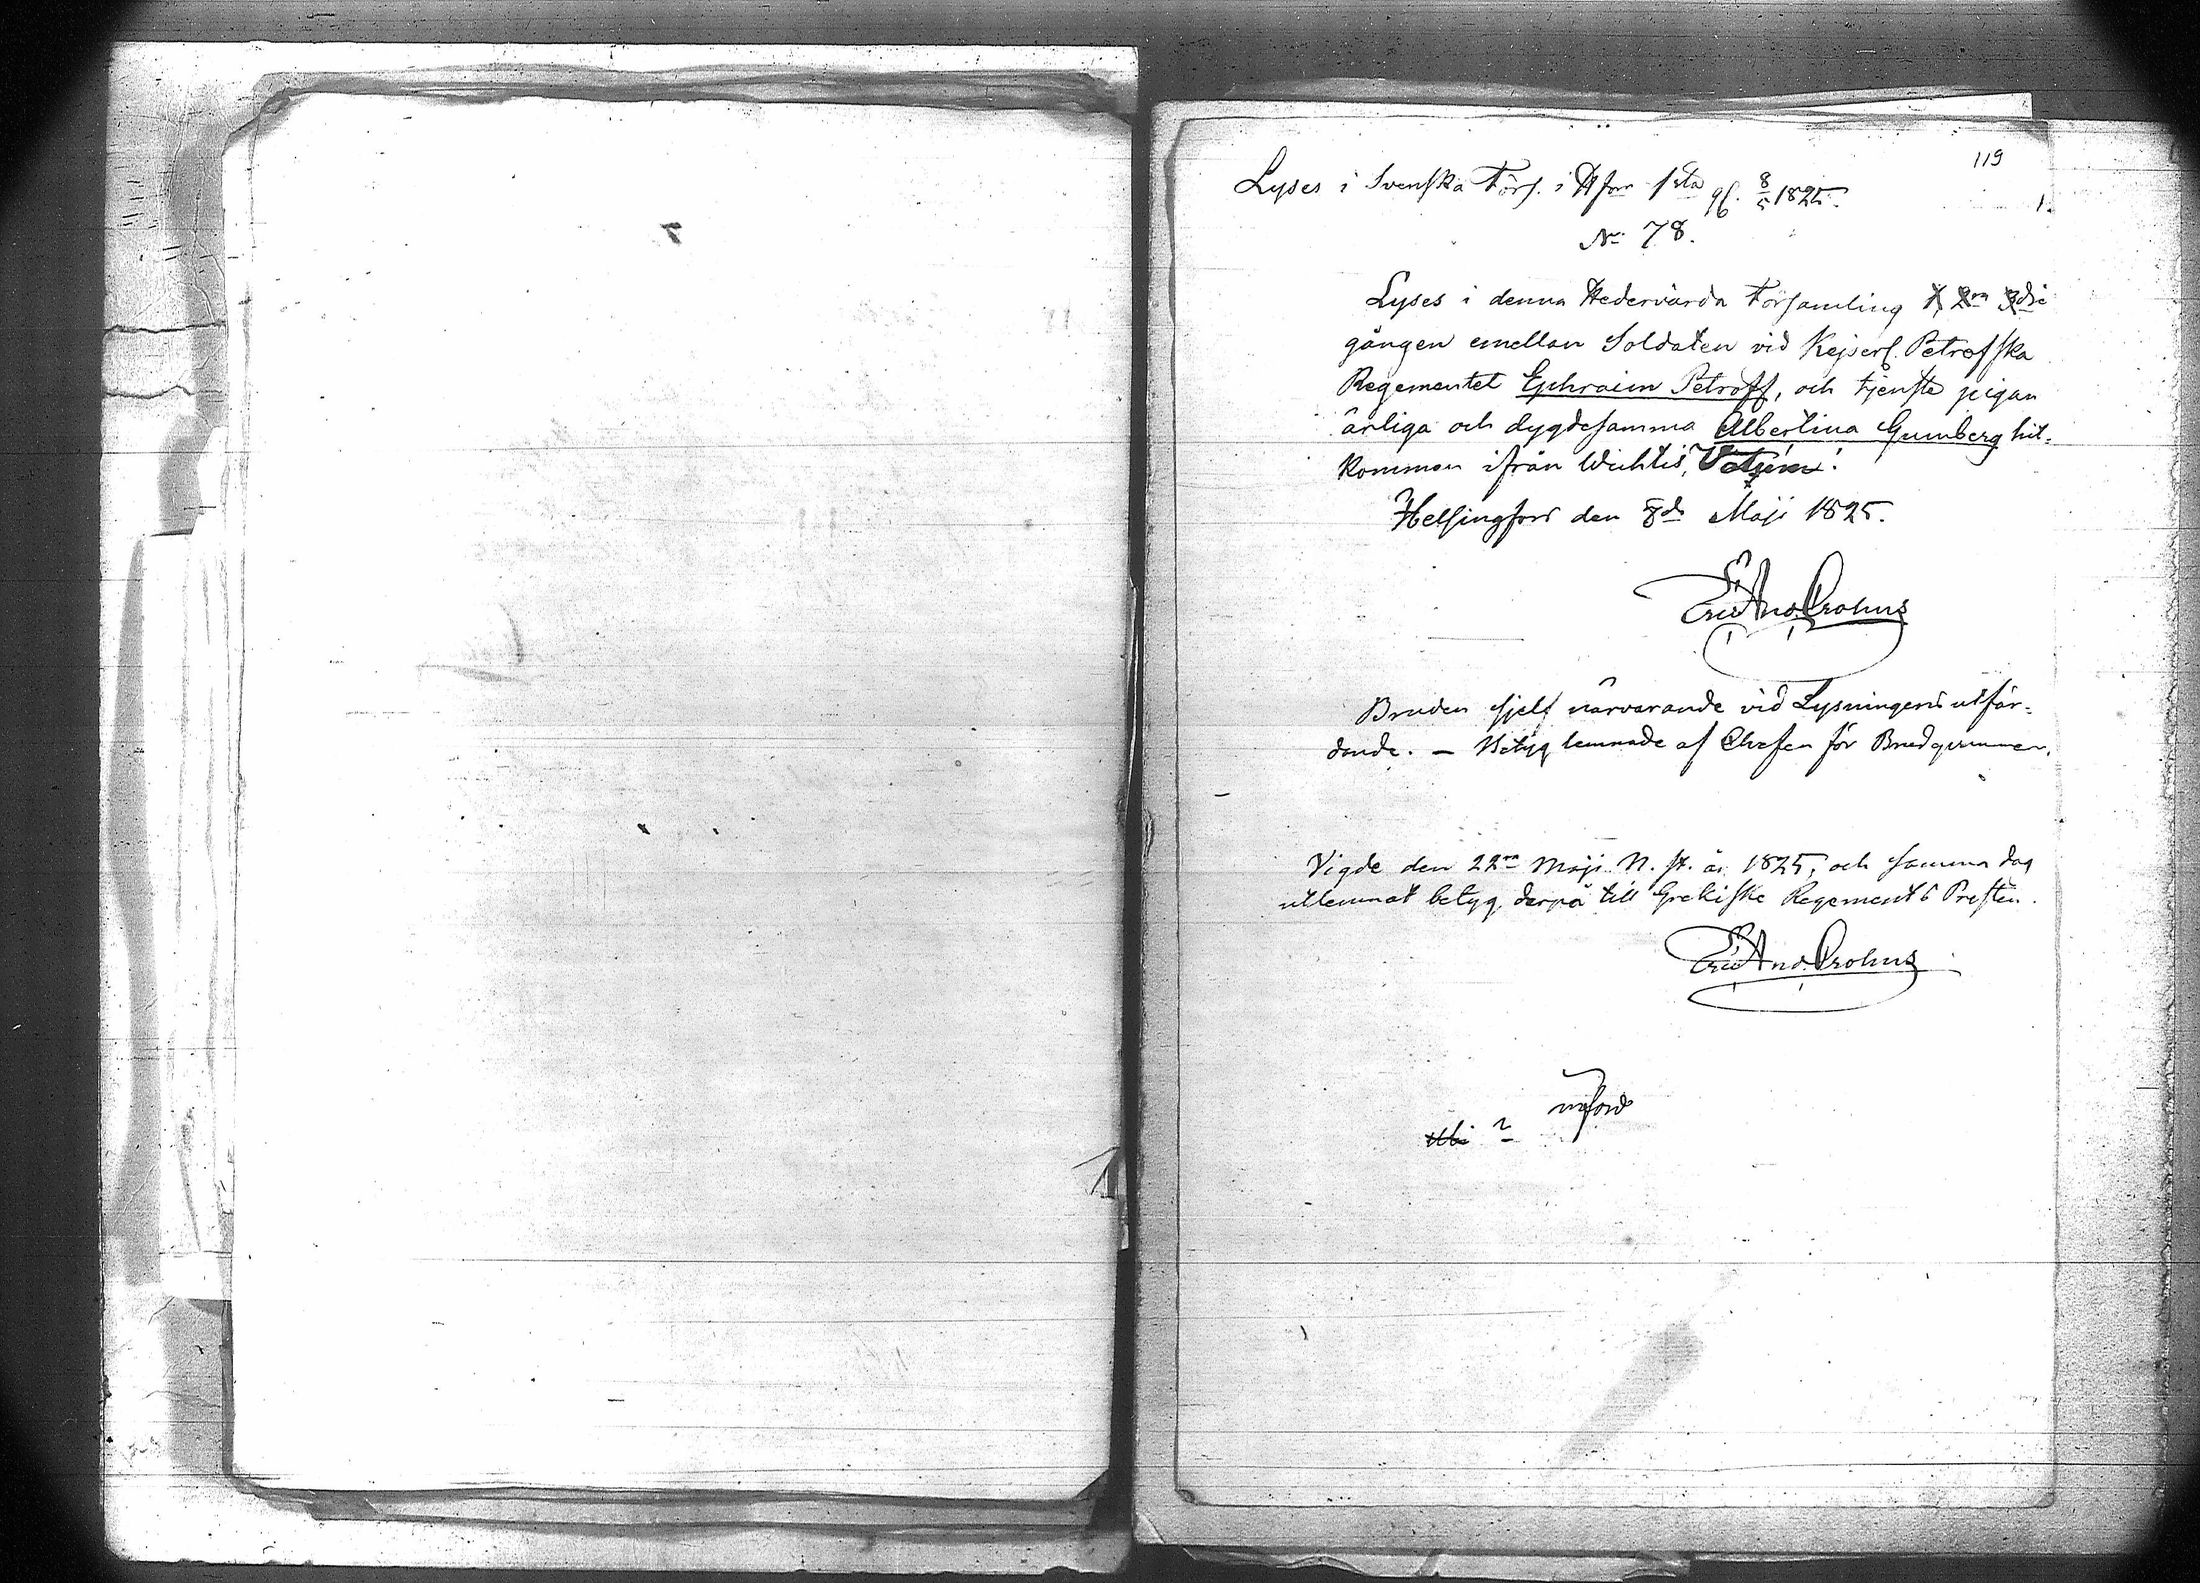 119
Lyses i Svenska Förs. i Hfors 1sta gg. 8/5 1825.
1.
No 78.
Lyses i denna Hedervärda Församling 1, 2ra 3die
gången emellan Soldaten vid Kejserl. Petrofska
Regementet Ephraim Petroff, och tjenste pigan
ärliga och dygdesamma Albertina Gumberg hit-
kommen ifrån Wichtis,
Helsingfors den 8de Maji 1825.
Eric And. Crohns
Bruden sjelf närvarande vid Lysningens utfär-
dande. — Betyg lemnade af Chefen för Brudgummen.
Vigde den 22ra Maji N. st. år 1825, och samma dag
utlemnat betyg derpå till Grekiske Regements Presten.
Eric And. Crohns